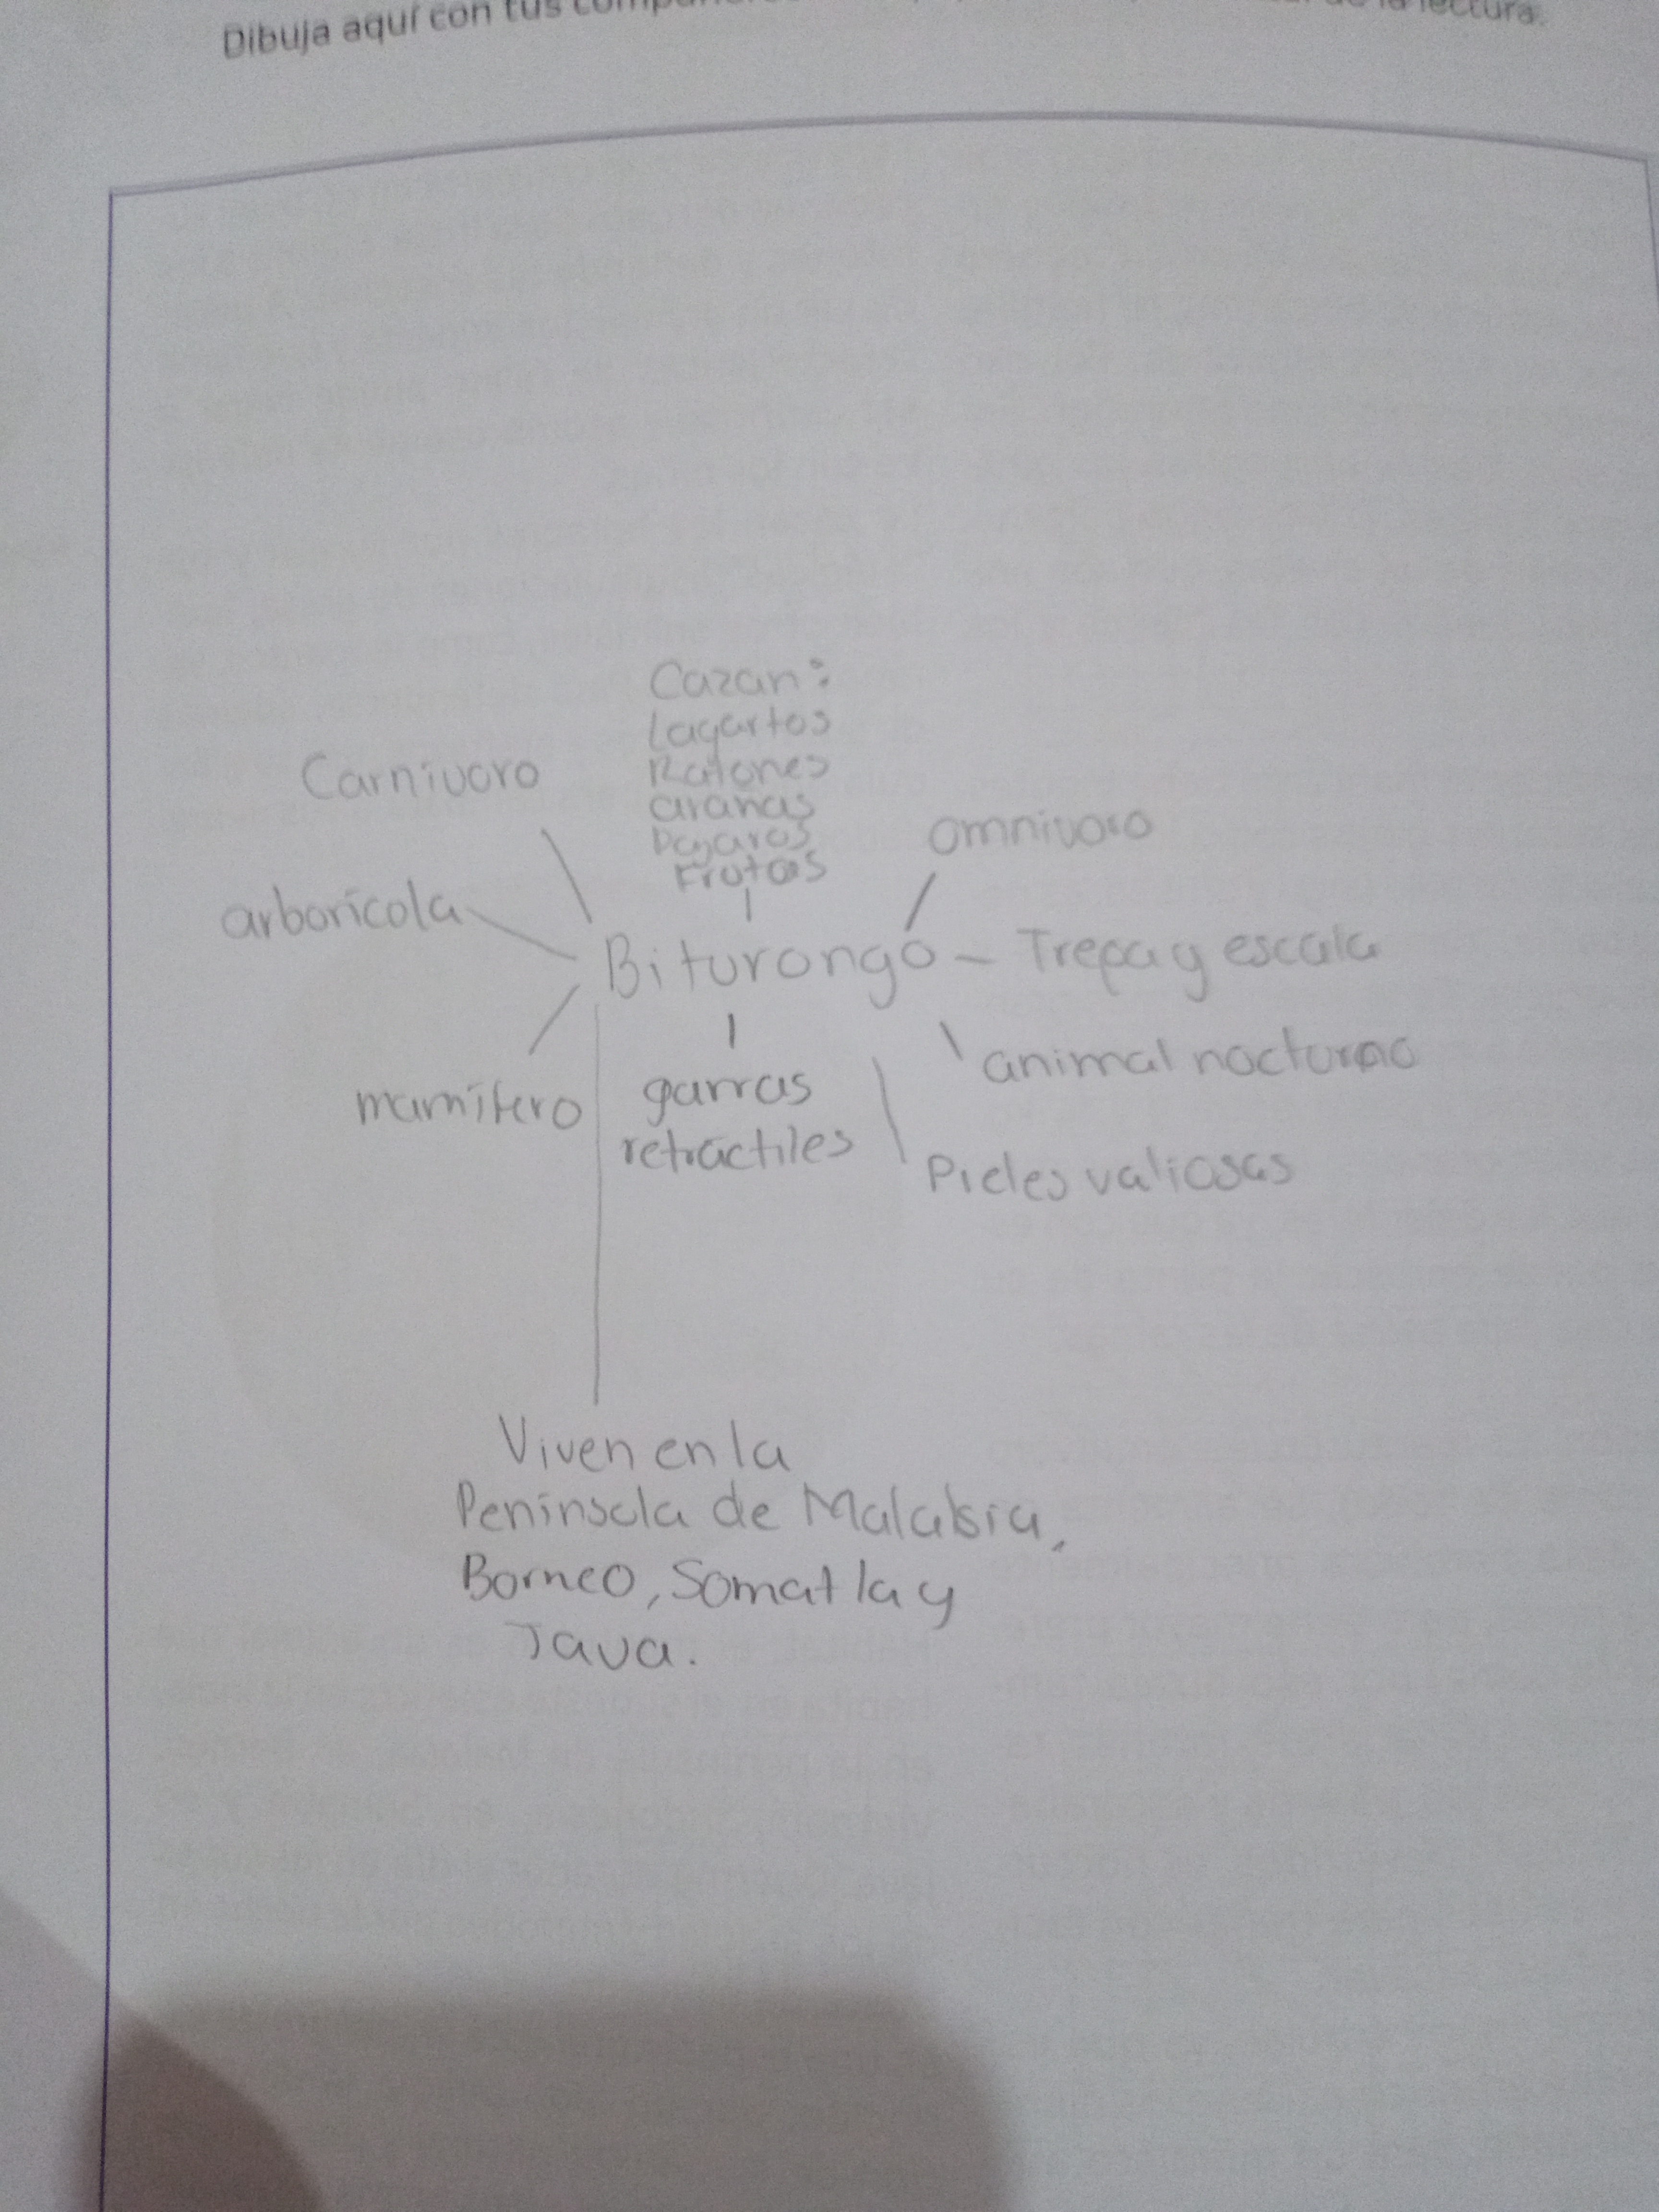 Dibuja aquí con tus de la lectura.
Cazan:
Lagartos
Ratones
arañas
Pajaros
Frutas
Carnivoro
omnivoro
arborícola
Biturongo
Trepa y escala
mamífero
garras
retráctiles
animal nocturno
Pieles valiosas
Viven en la
Penínscla de Malabsia,
Borneo, Somatla y
Java.